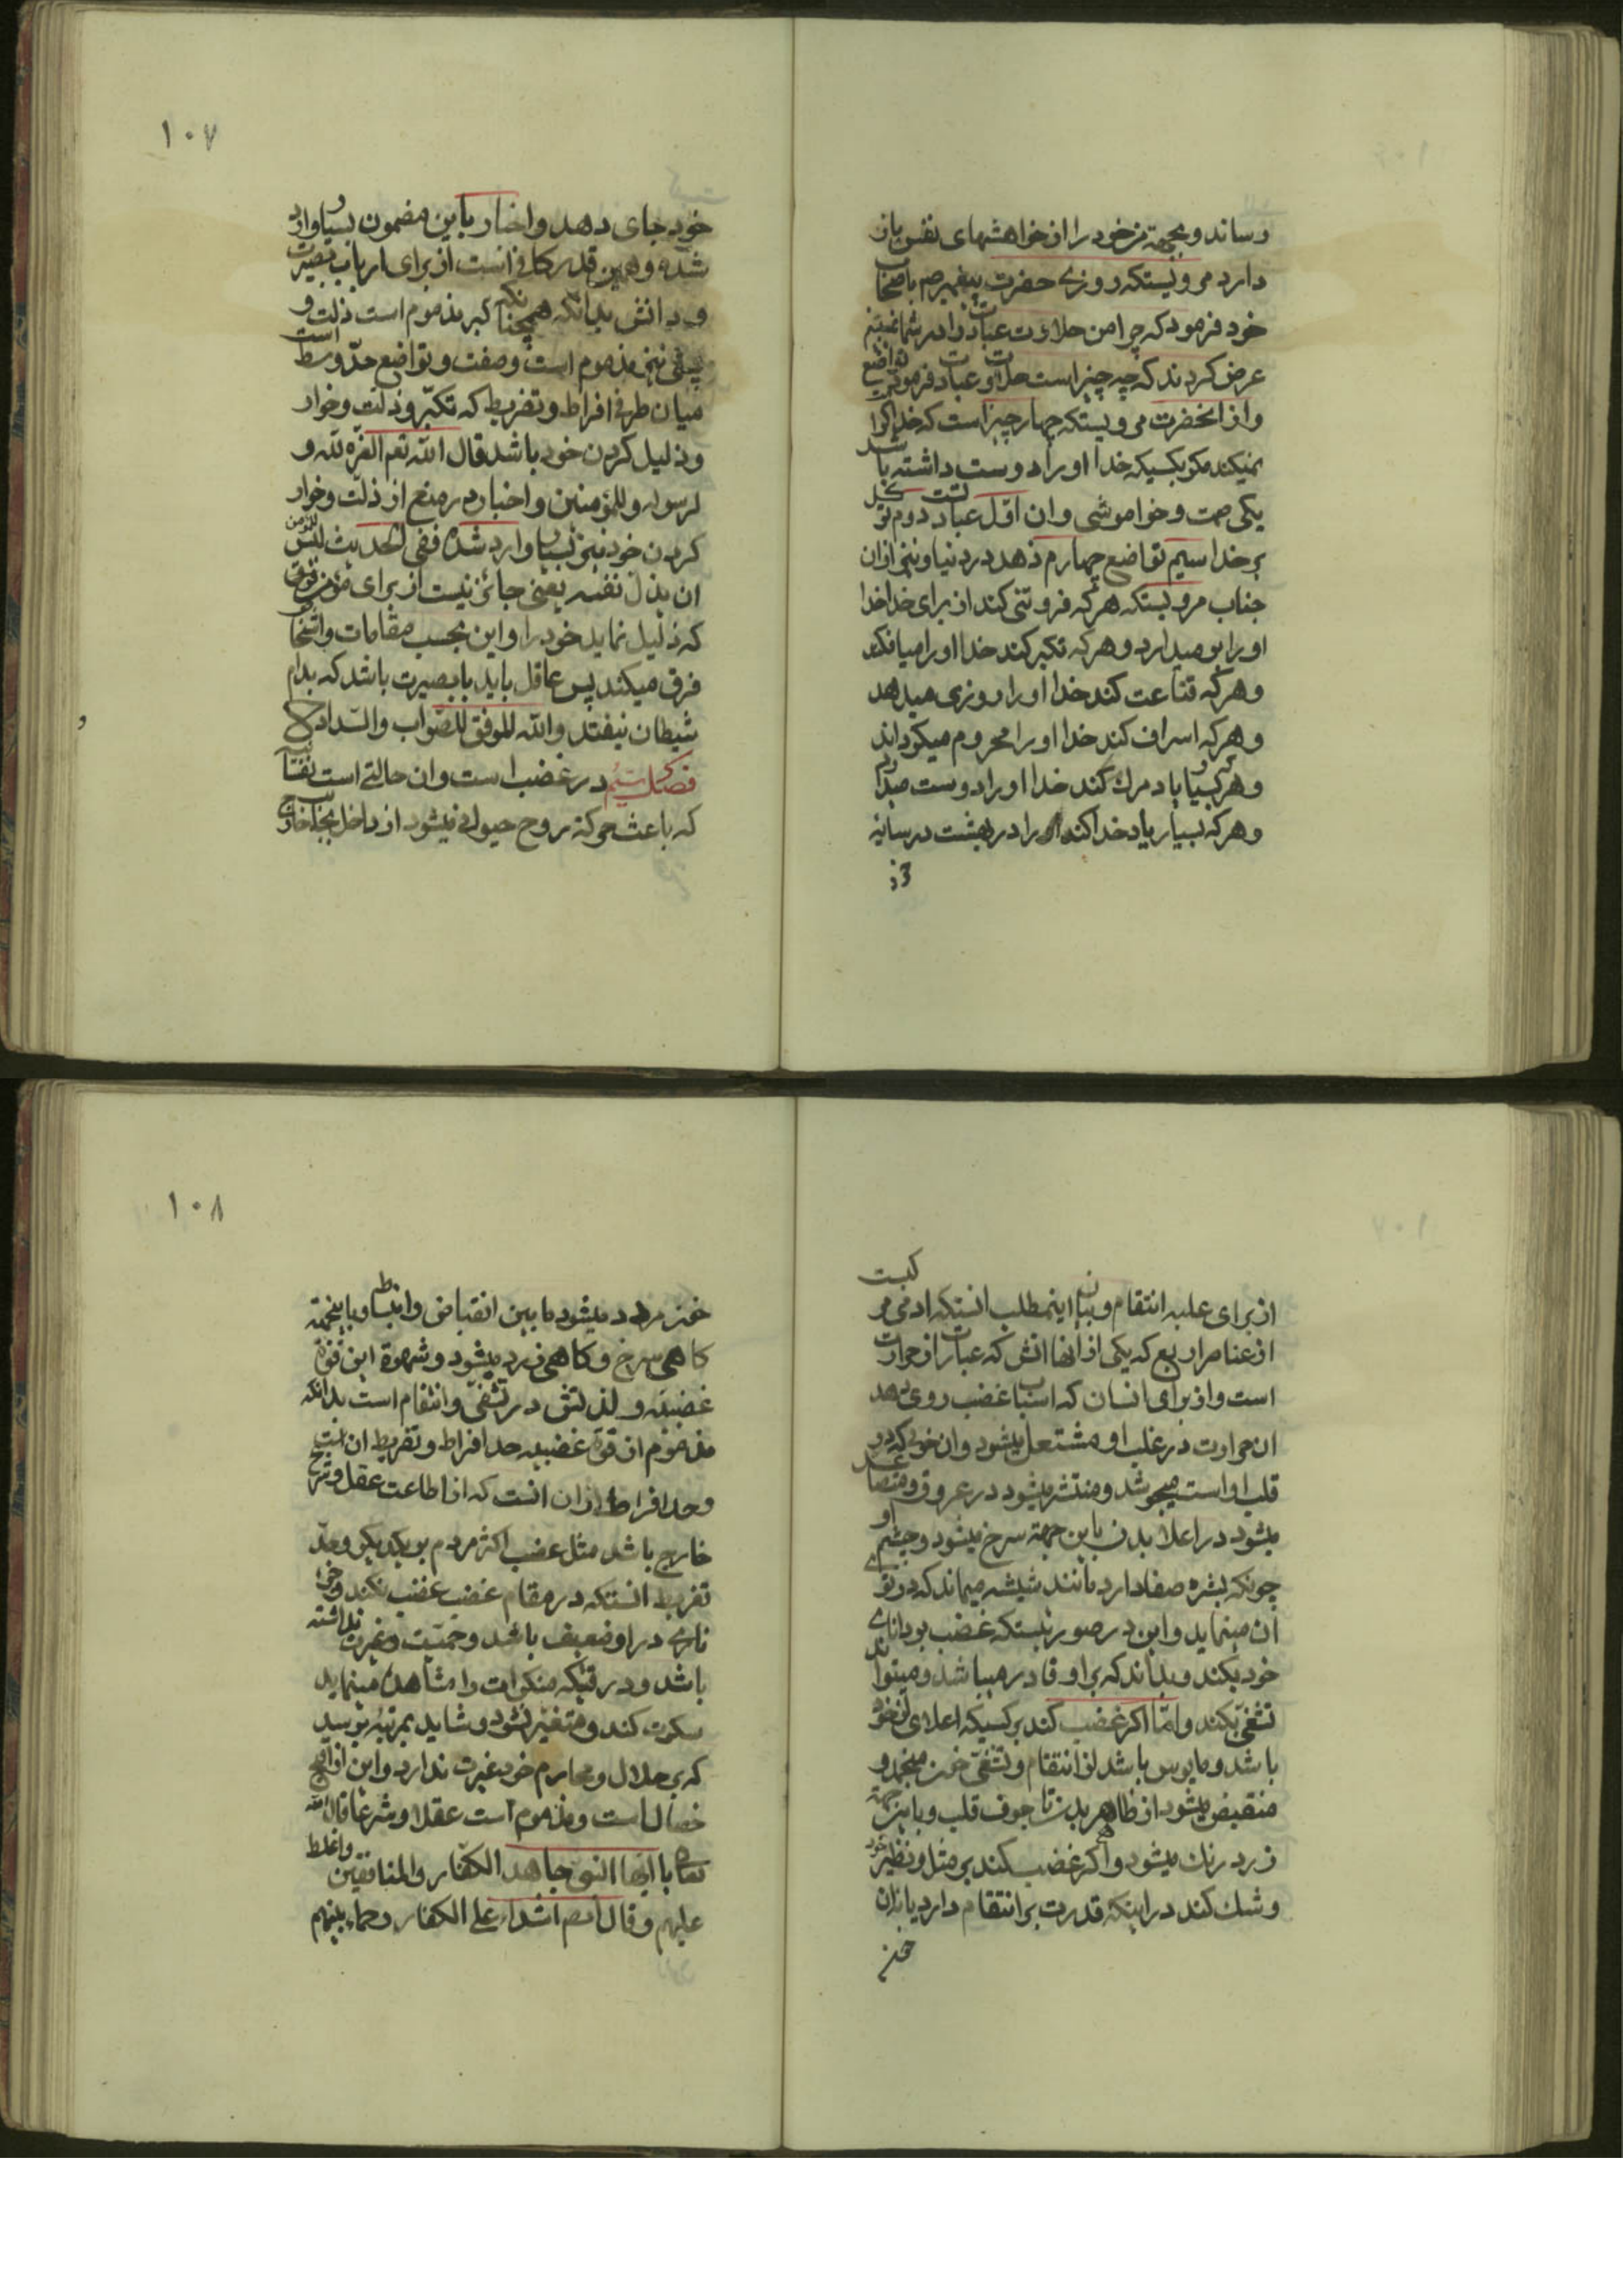 رساند و بجهة من خود را از خواهشهای نفس باز
دارد مرویستکه روزی حضرت پیغمبر صم باصحاب
خود فرمود که چرا من حلاوت عبادت را در شما نمی‌بینم
عرض کردند که چه چیز است حلاوت عبادت فرمود تواضع
و از انحضرت مرویستکه چهار چیز است که خدا کرامت
نمیکند مکر بکسیکه خدا او را دوست داشته باشد
یکی صمت و خواموشی و ان اوّل عبادتست دوم توکل
بر خدا سیم تواضع چهارم زهد در دنیا و نیز از ان
جناب مرویستکه هر که فروتنی کند از برای خدا خدا
او را بر میدارد و هر که تکبر کند خدا او را میافکند
و هر که قناعت کند خدا او را روزی میدهد
و هر که اسراف کند خدا او را محروم میکرداند
و هر که بسیار یاد مرك کند خدا او را دوست میدارد
و هر که بسیار یاد خدا کند او را در بهشت در سایه
خود
۱۰۷
خود جای دهد و اخبار باین مضمون بسیار وارد
شده و همین قدر کافی است از برای ارباب بصیرت
و دانش بدانکه همچنانکه کبر مذموم است ذلت و
نیز مذموم است و صفت تواضع حدّ وسط است
میان طرفی افراط و تفریط که تکبّر و ذلّت و خوار
و ذلیل کردن خود باشد قال الله تعم العزّه لله و
لرسوله و للمؤمنین و اخبار در منع از ذلّت و خوار
کردن خود نیز بسیار وارد شده ففی الحدیث لیس للمؤمن
ان یذل نفسه یعنی جائز نیست از برای مؤمن
که ذلیل نماید خود را و این بحسب مقامات و اشخاص
فرق میکند پس عاقل باید با بصیرت باشد که بدام
شیطان نیفتد و الله الموفق للصّواب و السّداد
فصل سیُم در غضب است و ان حالتی است نفسانیه
که باعث حرکة روح حیوانی میشود از داخل بجانب خارج
از برای غلبه انتقام و بیان اینمطلب انستکه ادمی مرکبست
از عناصر اربع که یکی از انها اتش که عبارت از حرارت
است و از برای انسان که اسباب غضب روی دهد
ان حرارت در غلب او مشتعل میشود و ان خونی که در
قلب او است میجوشد و منتشر میشود در عروق و متصاعد
میشود در اعلا بدن باین جهة سرخ میشود و چشم او
چونکه بشره صفا دارد مانند شیشه میماند که در توی
ان مینماید و این در صورتیستکه غضب بر دانای
خود بکند و بداند که بر او قادر میباشد و میتواند
تشفّی بکند و امّا اکر غضب کند بر کسیکه اعلای از خود
باشد و مایوس باشد از انتقام و تشفّی خون منجمد و
منقبض میشود از ظاهر بدن تا جوف قلب و باین جهة
زرد رنك میشود و اکر غضب کند بر مثل و نظیر خود
و شك کند در اینکه قدرت بر انتقام دارد یا نه ان
خون
۱۰۸
خون مردد میشود ما بین انقباض و انبساط و باینجهة
کاهی سرخ و کاهی زرد میشود و شهوة این قوّة
غضبیّه و لذتش در تشفّی و انتقام است بدانکه
مذموم از قوّة غضبیه حد افراط و تفریط ان است
و حد افراط از ان انست که از اطاعت عقل و شرع
خارج باشد مثل غضب اکثر مردم بر یکدیکر و حدّ
تفریط انستکه در مقام غضب غضب نکند و
در او ضعیف باشد و حمیّت و غیرت نداشته
باشد و در وقتیکه منکرات را مشاهده مینماید
سکوت کند و متغیّر نشود و شاید بمرتبه برسد
که بر حلال و محارم خود غیرت ندارد و این از اقبح
خصال است و مذموم است عقلا و شرعا قال الله
تعا یا ایّها النبی جاهد الکفّار و المنافقین و اغلظ
علیهم و قال تعم اشداء علی الکفار رحماء بینهم